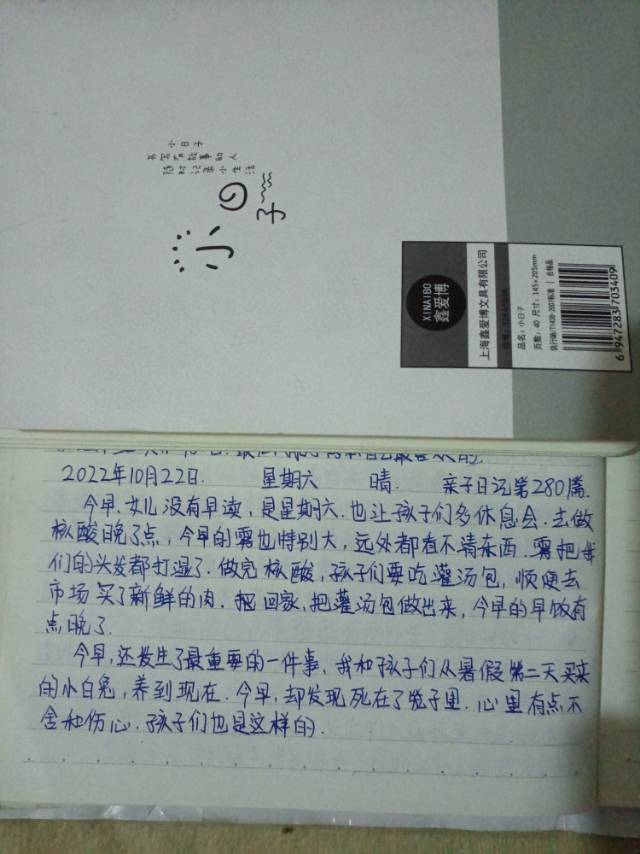 小日子
书写有故事的人
随时记录小生活
小日子
XINAIBO
鑫爱博
上海鑫爱博文具有限公司
品名：小日子
页数：40 尺寸：145×205mm
执行QB/T1438-2007标准 | 合格品
6 947283 703409
2022年10月22日. 星期六 晴. 亲子日记第280篇.
今早,女儿没有早读,是星期六.也让孩子们多休息会.去做
核酸晚了点,今早的雾也特别大,远处都看不清东西.雾把我
们的头发都打湿了.做完核酸,孩子们要吃灌汤包,顺便去
市场买了新鲜的肉.回家,把灌汤包做出来,今早的早饭有
点晚了.
今早,还发生了最重要的一件事.我和孩子们从暑假第二天买来
的小白兔,养到现在.今早,却发现死在了笼子里.心里有点不
舍和伤心.孩子们也是这样的.